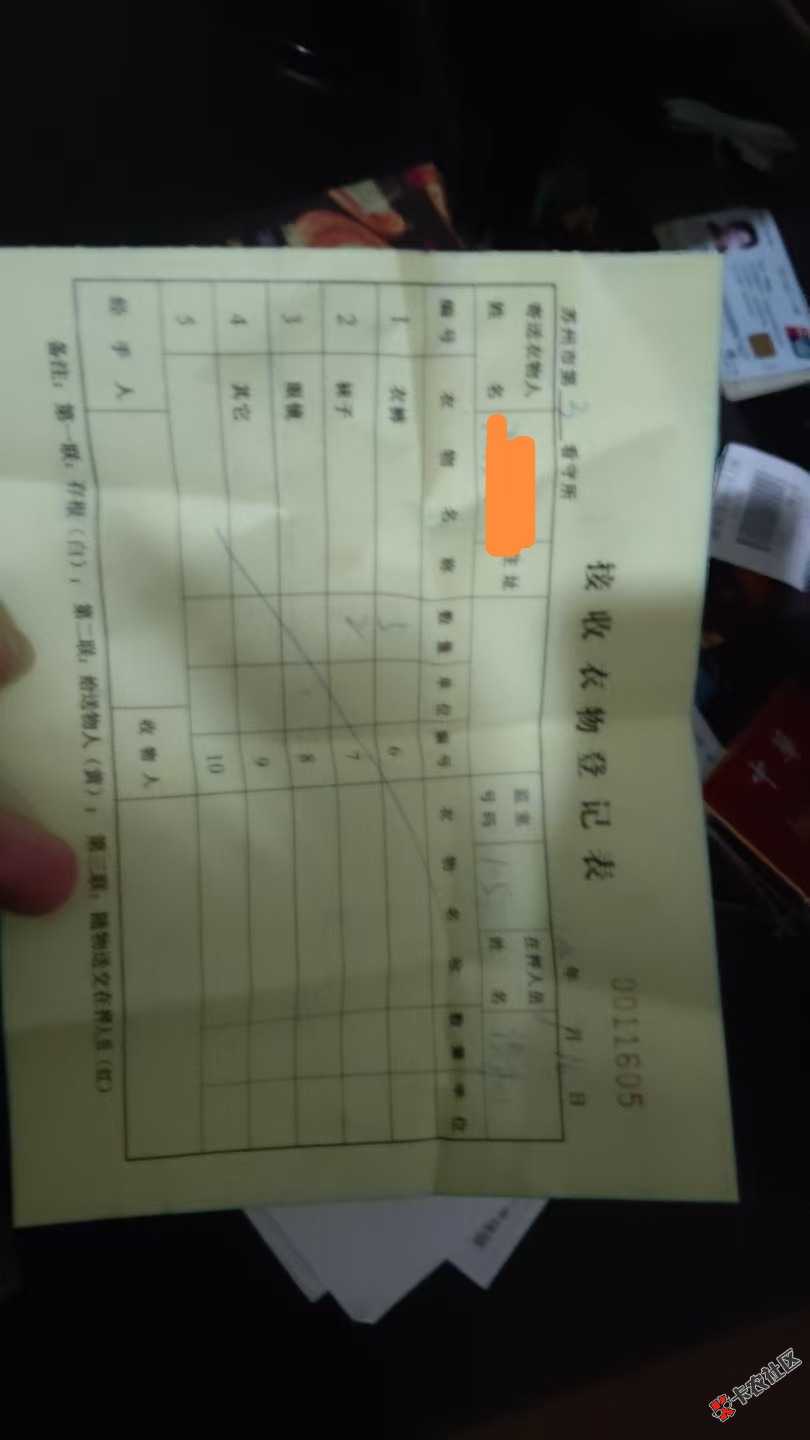 接收衣物登记表
0011605
苏州市第3看守所 年 月 日
寄送衣物人姓名 住址 监室号码 在押人员姓名
编号 衣物名称 数量 单位 编号 衣物名称 数量 单位
1 衣裤 6
2 袜子 2 7
3 眼镜 8
4 其它 9
5 10
经手人 收物人
备注:第一联:存根(白); 第二联:给送物人(黄); 第三联:随物送交在押人员(红)
卡农社区